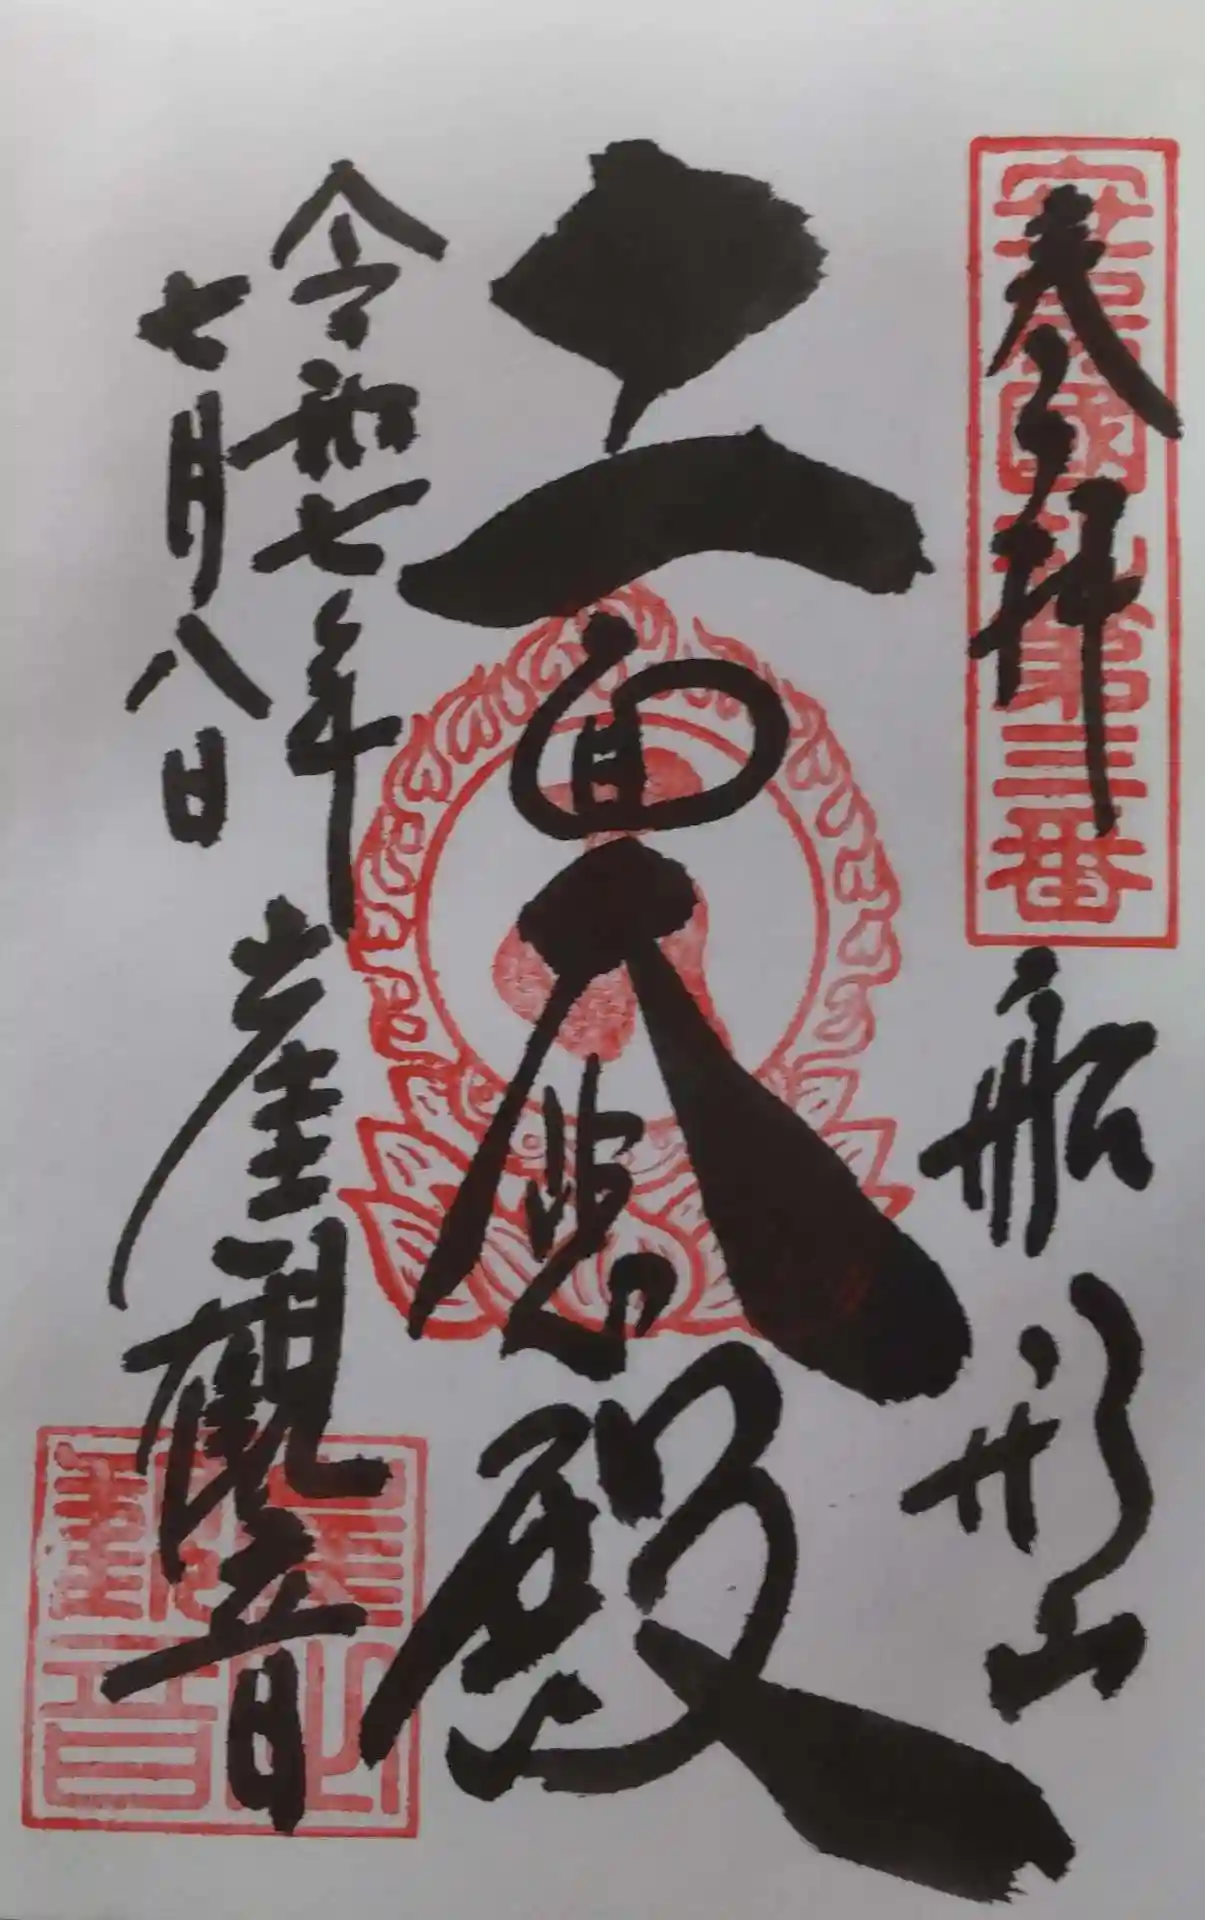 安房國札第三番
奉拝
船形山
十一面大悲殿
令和七年
七月八日
崖觀音